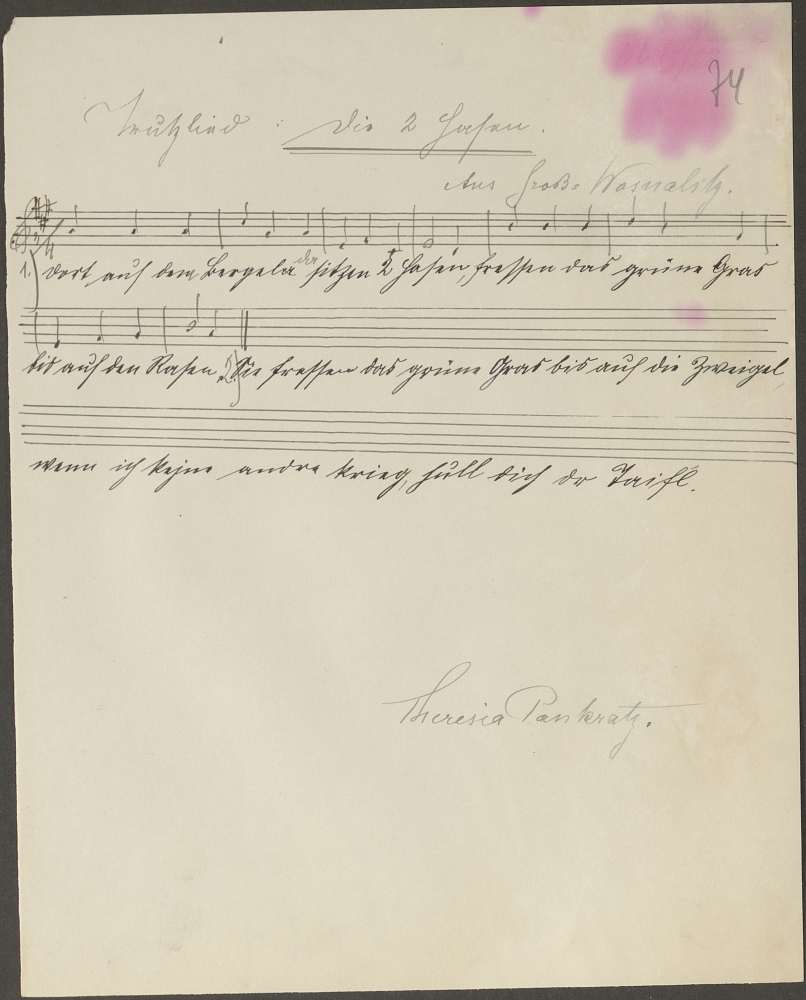 74
Trutzlied : Die 2 Hasen.
Aus Groß-Wosnalitz.
3/4
1.) Dort auf dem Bergela da sitzen 2 Hasen, fressen das grüne Gras
bis auf den Rasen. 2.) Sie fressen das grüne Gras bis auf die Zweigel,
wenn ich kejne andre krieg, hull dich dr Taifl.
Theresia Pankratz.